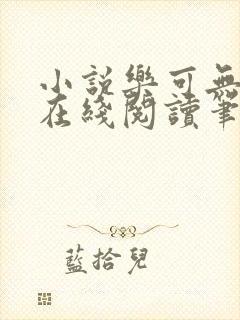 小説樂可無
在綫閱讀筆
藍拾兒